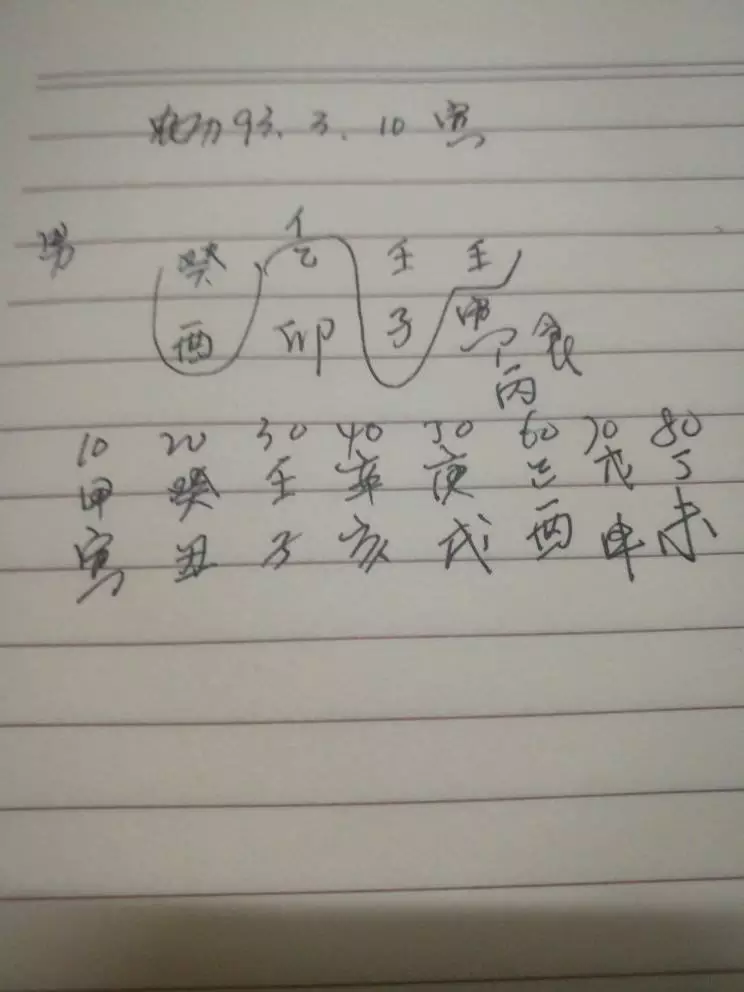 93.3.10 寅
男 癸 乙 壬 壬
酉 卯 子 寅 食
丙
10 20 30 40 50 60 70 80
甲 癸 壬 辛 庚 己 戊 丁
寅 丑 子 亥 戌 酉 申 未